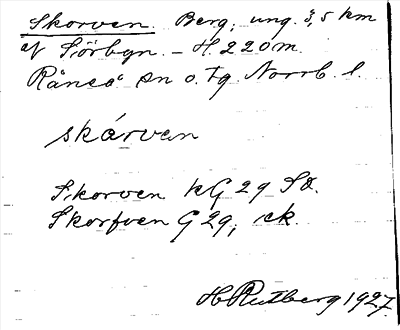 Skorven. Berg, ung. 3,5 km
af Sörbyn. – H. 220 m.
Råneå sn o. tg. Norrb. l.
skárven
Skorven kG 29 SO.
Skorfven G 29, ek.
H Rutberg 1927.